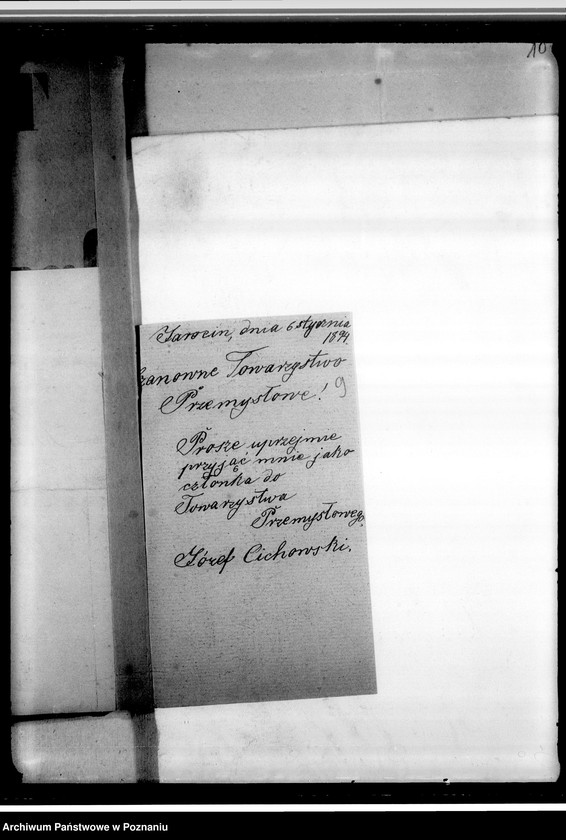 10
Jarocin, dnia 6 stycznia
1894
Szanowne Towarzystwo
Przemysłowe!
9
Prosze uprzejmie
przyjąć mnie jako
członka do
Towarzystwa
Przemysłowego.
Józef Cichowski.
Archiwum Państwowe w Poznaniu